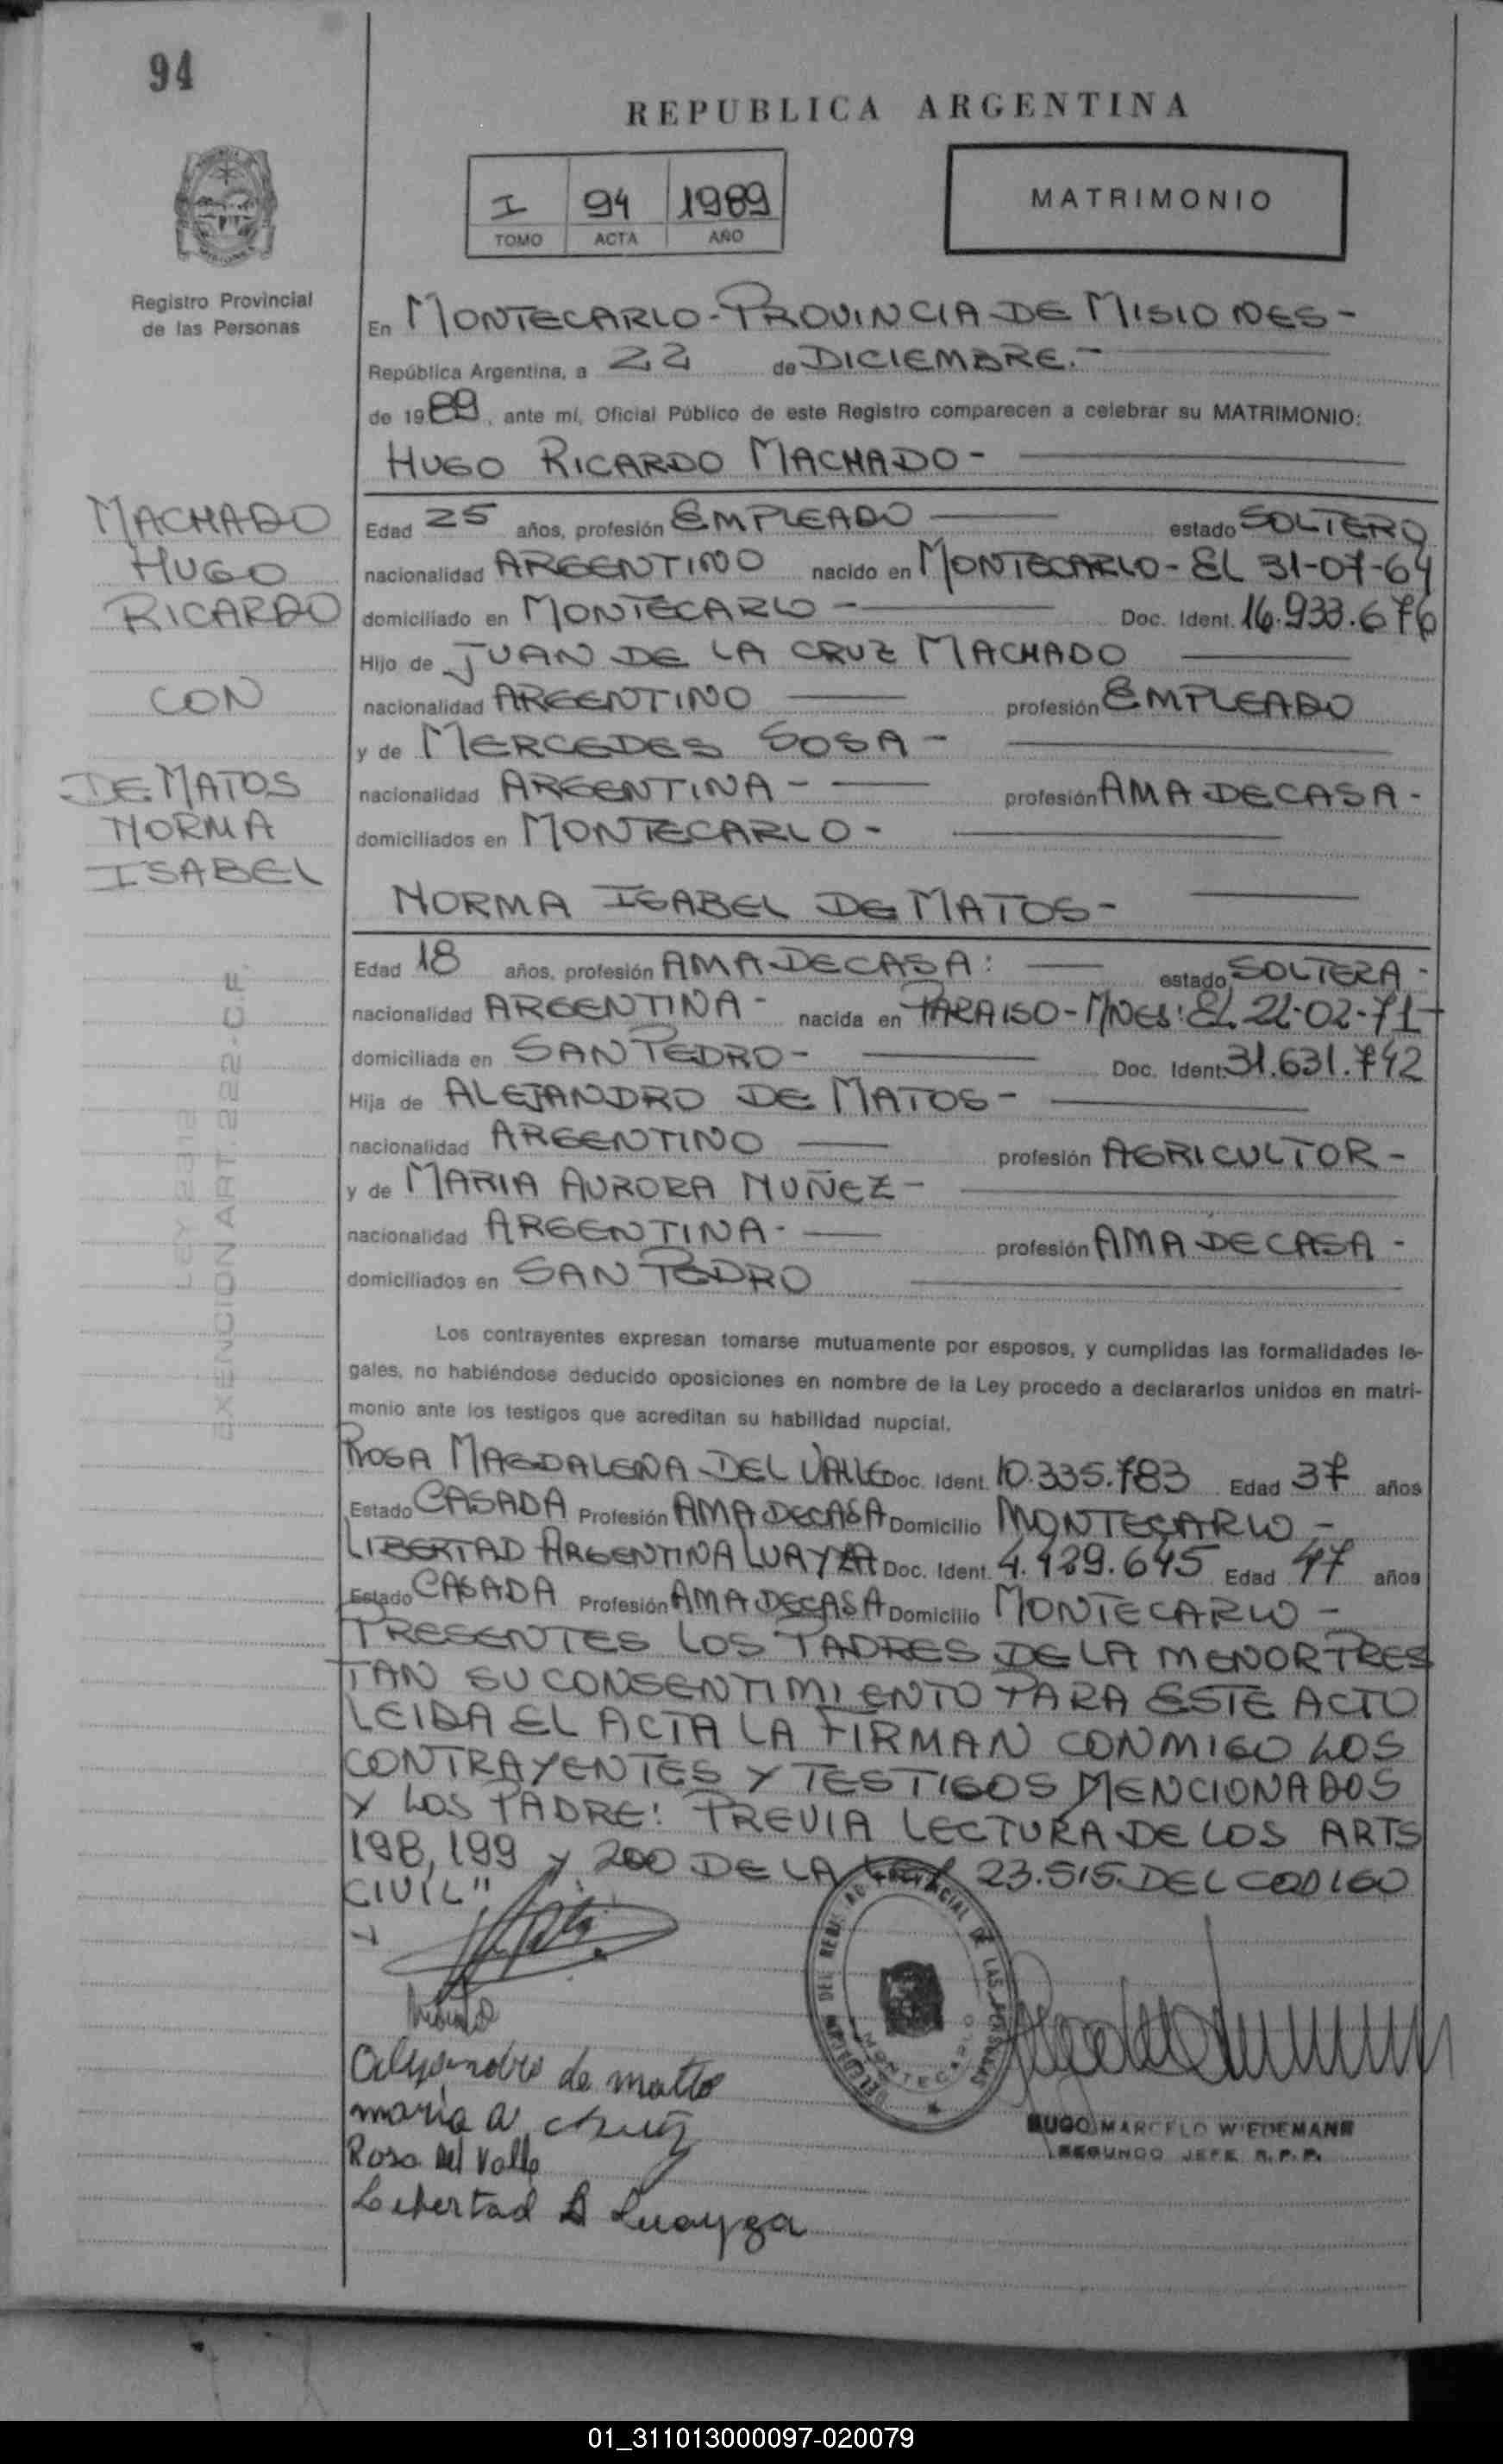 94
REPUBLICA ARGENTINA
I 94 1989
TOMO ACTA AÑO
MATRIMONIO
Registro Provincial
de las Personas
En MONTECARLO-PROVINCIA DE MISIONES-
República Argentina, a 22 de DICIEMBRE.-
de 1989, ante mí, Oficial Público de este Registro comparecen a celebrar su MATRIMONIO:
HUGO RICARDO MACHADO-
MACHADO
HUGO
RICARDO
CON
DE MATOS
NORMA
ISABEL
Edad 25 años, profesión EMPLEADO estado SOLTERO
nacionalidad ARGENTINO nacido en MONTECARLO- EL 31-07-64
domiciliado en MONTECARLO- Doc. Ident. 16.933.676
Hijo de JUAN DE LA CRUZ MACHADO
nacionalidad ARGENTINO profesión EMPLEADO
y de MERCEDES SOSA-
nacionalidad ARGENTINA- profesión AMA DE CASA-
domiciliados en MONTECARLO-
NORMA ISABEL DE MATOS-
Edad 18 años, profesión AMA DE CASA: estado SOLTERA-
nacionalidad ARGENTINA- nacida en PARAISO-MNES: EL 22-02-71-
domiciliada en SAN PEDRO- Doc. Ident. 31.631.742
Hija de ALEJANDRO DE MATOS-
nacionalidad ARGENTINO profesión AGRICULTOR-
y de MARIA AURORA NUÑEZ-
nacionalidad ARGENTINA- profesión AMA DE CASA-
domiciliados en SAN PEDRO
LEY 2312
EXENCION ART. 222-C.F.
Los contrayentes expresan tomarse mutuamente por esposos, y cumplidas las formalidades le-
gales, no habiéndose deducido oposiciones en nombre de la Ley procedo a declararlos unidos en matri-
monio ante los testigos que acreditan su habilidad nupcial.
ROSA MAGDALENA DEL VALLE Doc. Ident. 10.335.783 Edad 37 años
Estado CASADA Profesión AMA DE CASA Domicilio MONTECARLO-
LIBERTAD ARGENTINA LUAYZA Doc. Ident. 4.429.645 Edad 47 años
Estado CASADA Profesión AMA DE CASA Domicilio MONTECARLO-
PRESENTES LOS PADRES DE LA MENOR PRES
TAN SU CONSENTIMIENTO PARA ESTE ACTO
LEIDA EL ACTA LA FIRMAN CONMIGO LOS
CONTRAYENTES Y TESTIGOS MENCIONADOS
Y LOS PADRE: PREVIA LECTURA DE LOS ARTS
198, 199 Y 200 DE LA LEY 23.515. DEL CODIGO
CIVIL"
PROVINCIAL DE LAS PERSONAS
MONTECARLO
Alejandro de matto
maria a
Rosa del Valle
Libertad A Luayza
HUGO MARCELO WIEDEMANN
SEGUNDO JEFE R.P.P.
01_311013000097-020079